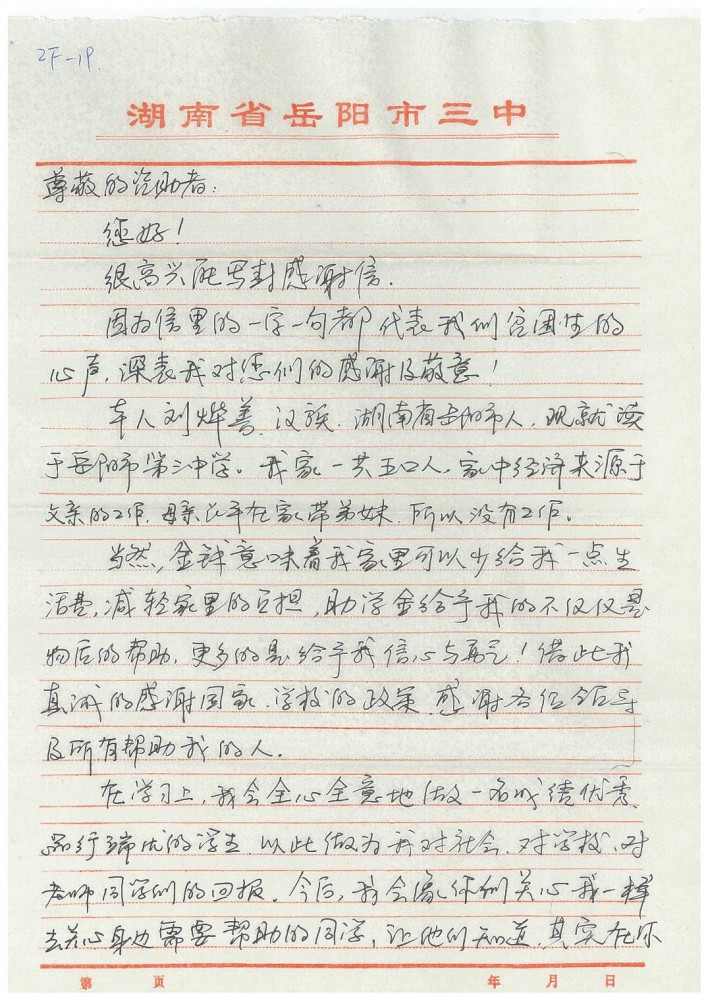 2F-19.
湖南省岳阳市三中
尊敬的资助者:
您好!
很高兴能写封感谢信.
因为信里的一字一句都代表我们贫困生的
心声,深表我对您们的感谢及敬意!
本人刘烨善、汉族、湖南省岳阳市人,现就读
于岳阳市第三中学。我家一共五口人,家中经济来源于
父亲的工作,母亲几年在家带弟妹,所以没有工作。
当然,金钱意味着我家里可以少给我一点生
活费,减轻家里的负担,助学金给予我的不仅仅是
物质的帮助,更多的是给予我信心与再定!借此我
真诚的感谢国家、学校的政策,感谢各位领导
及所有帮助我的人.
在学习上,我会全心全意地做一名成绩优秀、
品行端优的学生,以此做为我对社会、对学校、对
老师同学们的回报。今后,我会像你们关心我一样
去关心身边需要帮助的同学,让他们知道,其实在你
第 页 年 月 日